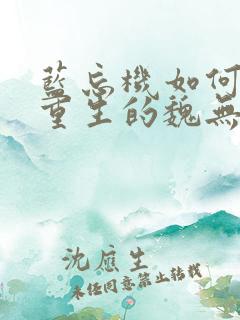 藍忘機如何
重生的魏無
沈應生
未经同意禁止转载